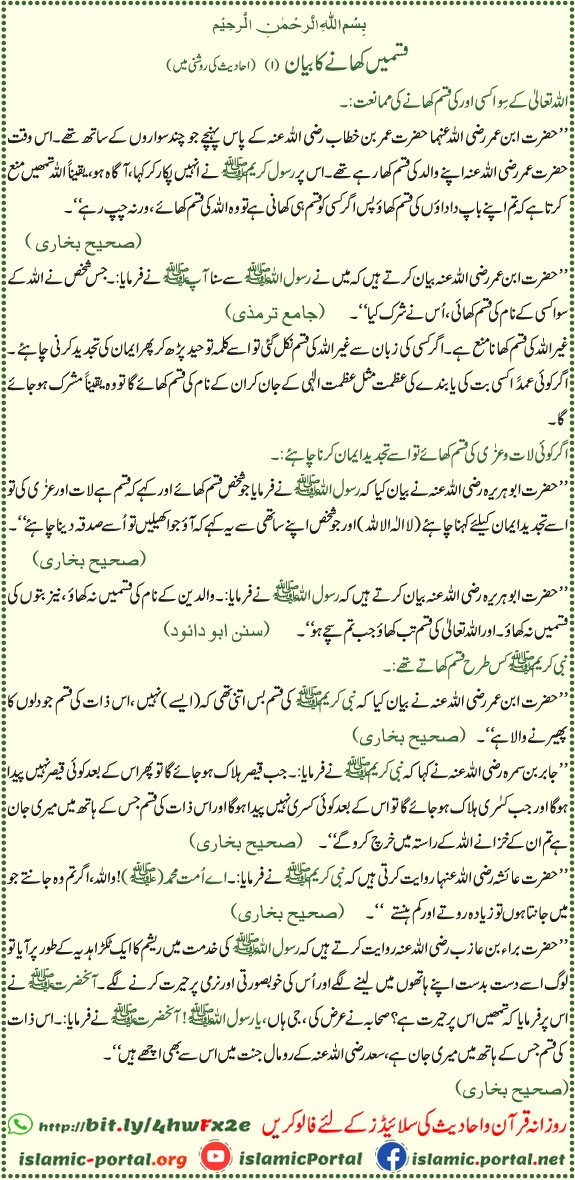 بِسْمِ اللهِ الرَّحْمٰنِ الرَّحِيْمِ
قسمیں کھانے کا بیان (۱) (احادیث کی روشنی میں)
اللہ تعالیٰ کے سوا کسی اور کی قسم کھانے کی ممانعت:۔
’’حضرت ابن عمر رضی اللہ عنہما حضرت عمر بن خطاب رضی اللہ عنہ کے پاس پہنچے جو چند سواروں کے ساتھ تھے۔ اس وقت
حضرت عمر رضی اللہ عنہ اپنے والد کی قسم کھا رہے تھے۔ اس پر رسول کریم ﷺ نے انہیں پکار کر کہا، آگاہ ہو، یقیناً اللہ تمھیں منع
کرتا ہے کہ تم اپنے باپ داداؤں کی قسم کھاؤ پس اگر کسی کو قسم ہی کھانی ہے تو وہ اللہ کی قسم کھائے، ورنہ چپ رہے‘‘۔
(صحیح بخاری)
’’حضرت ابن عمر رضی اللہ عنہ بیان کرتے ہیں کہ میں نے رسول اللہ ﷺ سے سنا آپ ﷺ نے فرمایا:۔ جس شخص نے اللہ کے
سوا کسی کے نام کی قسم کھائی، اُس نے شرک کیا‘‘۔ (جامع ترمذی)
غیر اللہ کی قسم کھانا منع ہے۔ اگر کسی کی زبان سے غیر اللہ کی قسم نکل گئی تو اسے کلمہ توحید پڑھ کر پھر ایمان کی تجدید کرنی چاہئے۔
اگر کوئی عمداً کسی بت کی یا بندے کی عظمت مثل عظمت الٰہی کے جان کر ان کے نام کی قسم کھائے گا تو وہ یقیناً مشرک ہو جائے
گا۔
اگر کوئی لات و عزیٰ کی قسم کھائے تو اسے تجدید ایمان کرنا چاہئے:۔
’’حضرت ابو ہریرہ رضی اللہ عنہ نے بیان کیا کہ رسول اللہ ﷺ نے فرمایا جو شخص قسم کھائے اور کہے کہ قسم ہے لات اور عزیٰ کی تو
اسے تجدید ایمان کیلئے کہنا چاہئے (لا الہ الا اللہ) اور جو شخص اپنے ساتھی سے یہ کہے کہ آؤ جوا کھیلیں تو اُسے صدقہ دینا چاہئے‘‘۔
(صحیح بخاری)
’’حضرت ابو ہریرہ رضی اللہ عنہ بیان کرتے ہیں کہ رسول اللہ ﷺ نے فرمایا:۔ والدین کے نام کی قسمیں نہ کھاؤ، نیز بتوں کی
قسمیں نہ کھاؤ۔ اور اللہ تعالیٰ کی قسم تب کھاؤ جب تم سچے ہو‘‘۔ (سنن ابو دائود)
نبی کریم ﷺ کس طرح قسم کھاتے تھے:۔
’’حضرت ابن عمر رضی اللہ عنہ نے بیان کیا کہ نبی کریم ﷺ کی قسم بس اتنی تھی کہ (ایسے) نہیں، اس ذات کی قسم جو دلوں کا
پھیرنے والا ہے‘‘۔ (صحیح بخاری)
’’جابر بن سمرہ رضی اللہ عنہ نے کہا کہ نبی کریم ﷺ نے فرمایا:۔ جب قیصر ہلاک ہو جائے گا تو پھر اس کے بعد کوئی قیصر نہیں پیدا
ہوگا اور جب کسریٰ ہلاک ہو جائے گا تو اس کے بعد کوئی کسریٰ نہیں پیدا ہوگا اور اس ذات کی قسم جس کے ہاتھ میں میری جان
ہے تم ان کے خزانے اللہ کے راستہ میں خرچ کرو گے‘‘۔ (صحیح بخاری)
’’حضرت عائشہ رضی اللہ عنہا روایت کرتی ہیں کہ نبی کریم ﷺ نے فرمایا:۔ اے اُمت محمد (ﷺ)! واللہ، اگر تم وہ جانتے جو
میں جانتا ہوں تو زیادہ روتے اور کم ہنستے ‘‘۔ (صحیح بخاری)
’’حضرت براء بن عازب رضی اللہ عنہ روایت کرتے ہیں کہ رسول اللہ ﷺ کی خدمت میں ریشم کا ایک ٹکڑا ہدیہ کے طور پر آیا تو
لوگ اسے دست بدست اپنے ہاتھوں میں لینے لگے اور اُس کی خوبصورتی اور نرمی پر حیرت کرنے لگے۔ آنحضرت ﷺ نے
اس پر فرمایا کہ تمھیں اس پر حیرت ہے؟ صحابہ نے عرض کی، جی ہاں، یا رسول اللہ ﷺ! آنحضرت ﷺ نے فرمایا:۔ اس ذات
کی قسم جس کے ہاتھ میں میری جان ہے، سعد رضی اللہ عنہ کے رومال جنت میں اس سے بھی اچھے ہیں‘‘۔
(صحیح بخاری)
روزانہ قرآن و احادیث کی سلائیڈز کے لئے فالو کریں http://bit.ly/4hwFx2e
islamic-portal.org islamicPortal islamic.portal.net